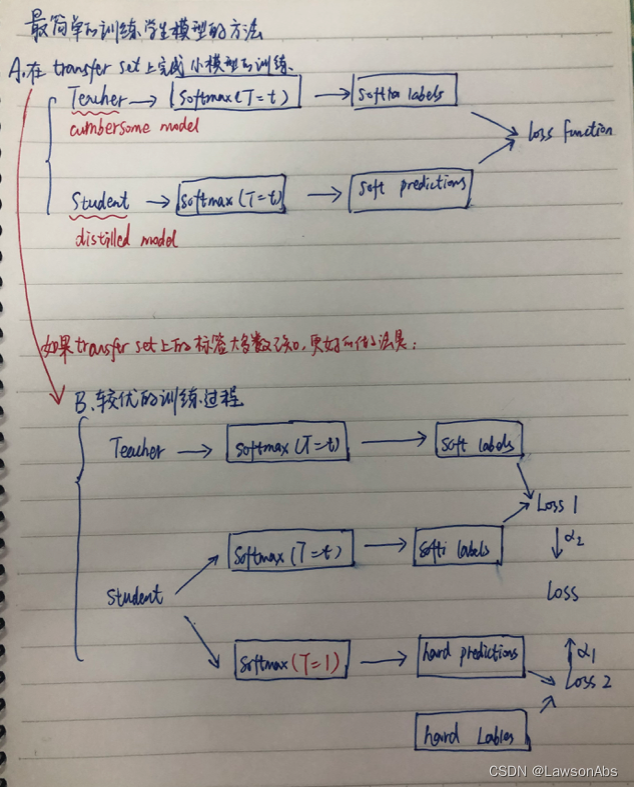 最简单的训练学生模型的方法
A.在 transfer set上完成小模型的训练.
Teacher → Softmax(T=t) → soft labels
cumbersome model
loss function
Student → Softmax(T=t) → soft predictions
distilled model
如果transfer set上的标签大多数已知,更好的做法是:
B.较优的训练过程
Teacher → Softmax(T=t) → soft labels
Loss 1
Softmax(T=t) → soft labels
α2
Student
Loss
Softmax(T=1) → hard predictions
α1
Loss 2
hard Lables
CSDN @LawsonAbs